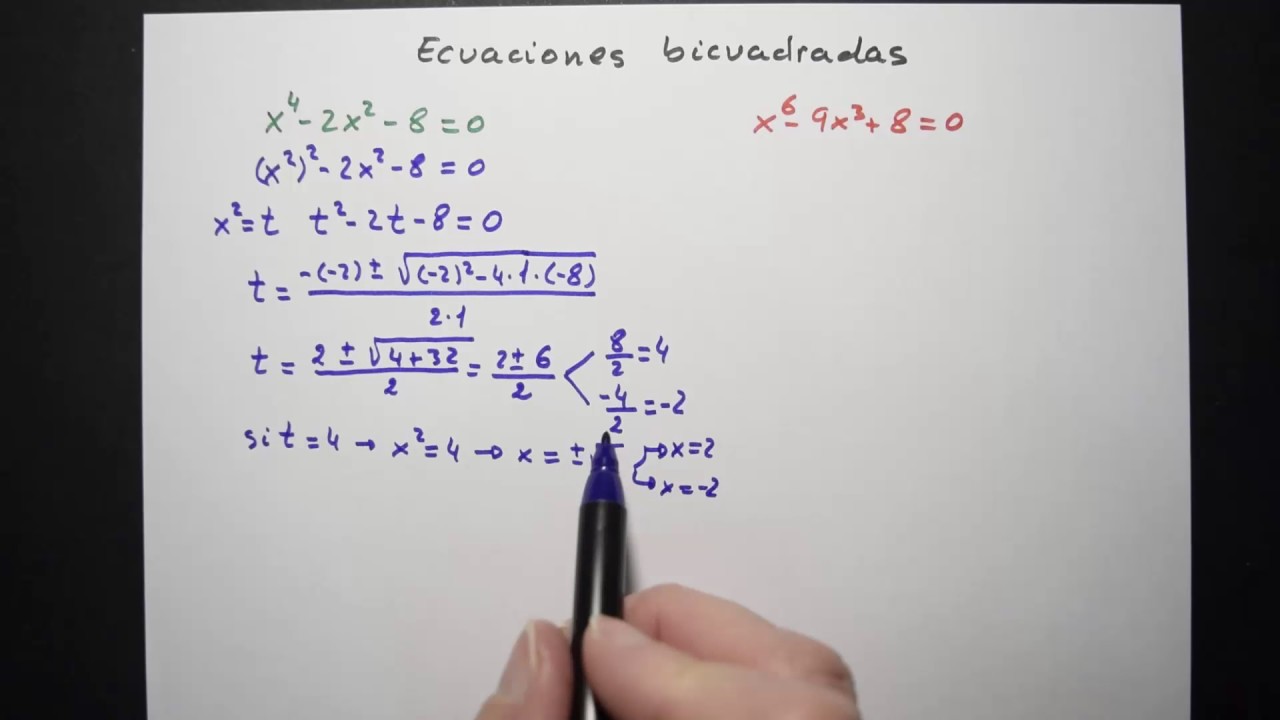 Ecuaciones bicuadradas
x⁴ - 2x² - 8 = 0
(x²)² - 2x² - 8 = 0
x² = t t² - 2t - 8 = 0
t = -(-2) ± √(-2)² - 4·1·(-8) / 2·1
t = 2 ± √4+32 / 2 = 2 ± 6 / 2 8/2 = 4
-4/2 = -2
si t = 4 → x² = 4 → x = ± → x = 2
→ x = -2
x⁶ - 9x³ + 8 = 0